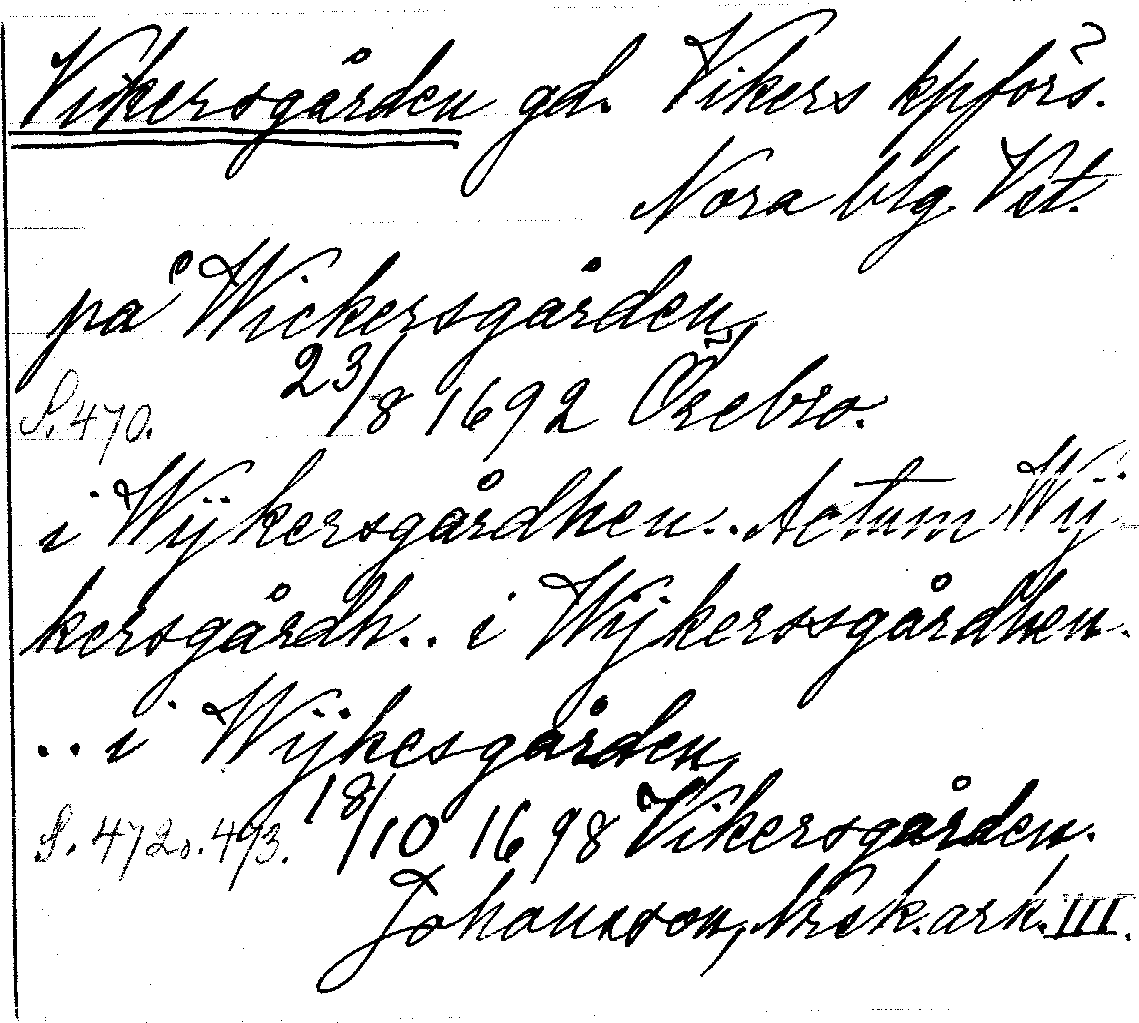 Vikersgården gd. Vikers kpförs.
Nora blg. Vst.
på Wickersgården,
S. 470. 23/8 1692 Örebro.
i Wijkersgårdhen.. Actum Wij-
kersgårdh.. i Wijkersgårdhen.
.. i Wijkesgården,
S. 472 o. 473. 18/10 1698 Vikersgården.
Johansson, Noraskog. ark. III.